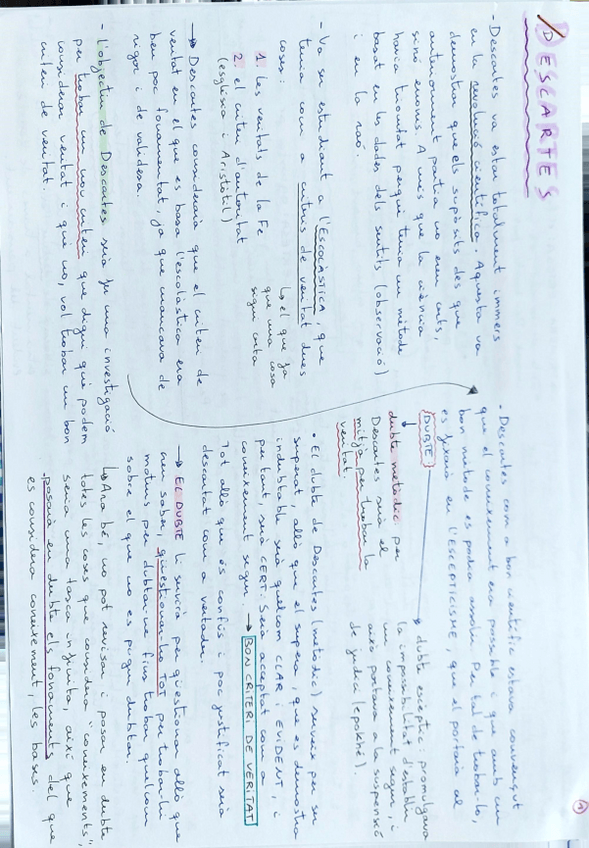 DESCARTES
- Descartes va estar totalment immers
en la revolució científica. Aquesta va
demostrar que els supòsits des que
anteriorment partia no eren certs,
sinó erronis. A més que la ciència
havia triomfat perquè tenia un mètode
basat en les dades dels sentits (observació)
i en la raó.
- Va ser estudiant a l'ESCOLÀSTICA, que
tenia com a criteris de veritat dues
coses:
1. Les veritats de la Fe
2. el criteri d'autoritat
(església i Aristòtil)
↳ el que fa
que una cosa
sigui certa
→ Descartes considerava que el criteri de
veritat en el que es basa l'escolàstica era
ben poc fonamentat, ja que mancava de
rigor i de validesa.
- L'objectiu de Descartes serà fer una investigació
per trobar un nou criteri que digui què podem
considerar veritat i què no, vol trobar un bon
criteri de veritat.
1
- Descartes com a bon científic estava convençut
que el coneixement era possible i que amb un
bon mètode es podria assolir. Per tal de trobar-lo,
es fixarà en l'ESCEPTICISME, que el portarà al
DUBTE
dubte escèptic: promulgava
la impossibilitat d'establir
un coneixement segur, i
això portava a la suspensió
de judici (epokhé).
dubte metòdic per
Descartes serà el
mitjà per trobar la
veritat.
• El dubte de Descartes (metòdic) serveix per ser
superat, allò que el supera, que es demostra
indubtable serà quelcom CLAR i EVIDENT, i
per tant, serà CERT. Serà acceptat com a
coneixement segur → BON CRITERI DE VERITAT
Tot allò que és confús i poc justificat serà
descartat com a vertader.
→ EL DUBTE li servirà per qüestionar allò que
hem saber, qüestionar-ho TOT per trobar-hi
motius per dubtar-ne fins trobar quelcom
sobre el que no es pugui dubtar.
↳ Ara bé, no pot revisar i posar en dubte
totes les coses que considera "coneixements",
seria una tasca infinita, així que
posarà en dubte els fonaments del que
es considera coneixement, les bases.